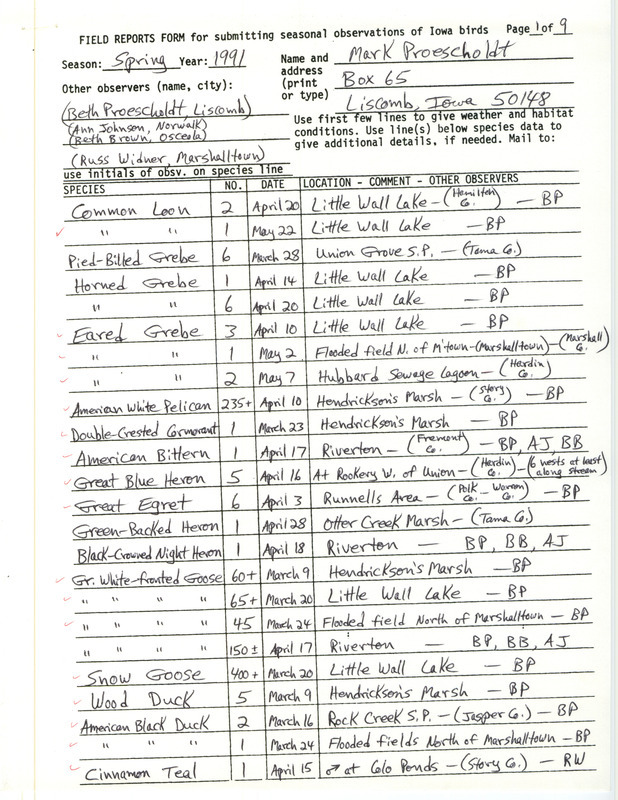 FIELD REPORTS FORM for submitting seasonal observations of Iowa birds Page 1 of 9
Season: Spring Year: 1991
Name and address (print or type) Mark Proescholdt
Box 65
Liscomb, Iowa 50148
Other observers (name, city):
(Beth Proescholdt, Liscomb)
(Ann Johnson, Norwalk)
(Beth Brown, Osceola)
(Russ Widner, Marshalltown)
use initials of obsv. on species line
Use first few lines to give weather and habitat
conditions. Use line(s) below species data to
give additional details, if needed. Mail to:
SPECIES NO. DATE LOCATION - COMMENT - OTHER OBSERVERS
Common Loon 2 April 20 Little Wall Lake - (Hamilton Co.) - BP
" " 1 May 22 Little Wall Lake - BP
Pied-Billed Grebe 6 March 28 Union Grove S.P. - (Tama Co.)
Horned Grebe 1 April 14 Little Wall Lake - BP
" " 6 April 20 Little Wall Lake - BP
Eared Grebe 3 April 10 Little Wall Lake - BP
" " 1 May 2 Flooded field N. of M'town - (Marshalltown) - (Marshall Co.)
" " 2 May 7 Hubbard Sewage Lagoon - (Hardin Co.)
American White Pelican 235+ April 10 Hendrickson's Marsh - (Story Co.) - BP
Double-Crested Cormorant 1 March 23 Hendrickson's Marsh - BP
American Bittern 1 April 17 Riverton - (Fremont Co.) - BP, AJ, BB
Great Blue Heron 5 April 16 At Rookery W. of Union - (Hardin Co.) - (6 nests at least along stream)
Great Egret 6 April 3 Runnells Area - (Polk Co. - Warren Co.) - BP
Green-Backed Heron 1 April 28 Otter Creek Marsh - (Tama Co.)
Black-Crowned Night Heron 1 April 18 Riverton - BP, BB, AJ
Gr. White-fronted Goose 60+ March 9 Hendrickson's Marsh - BP
" " " " 65+ March 20 Little Wall Lake - BP
" " " " 45 March 24 Flooded field North of Marshalltown - BP
" " " " 150± April 17 Riverton - BP, BB, AJ
Snow Goose 400+ March 20 Little Wall Lake - BP
Wood Duck 5 March 9 Hendrickson's Marsh - BP
American Black Duck 2 March 16 Rock Creek S.P. - (Jasper Co.) - BP
" " " 1 March 24 Flooded fields North of Marshalltown - BP
Cinnamon Teal 1 April 15 ♂ at 610 Ponds - (Story Co.) - RW